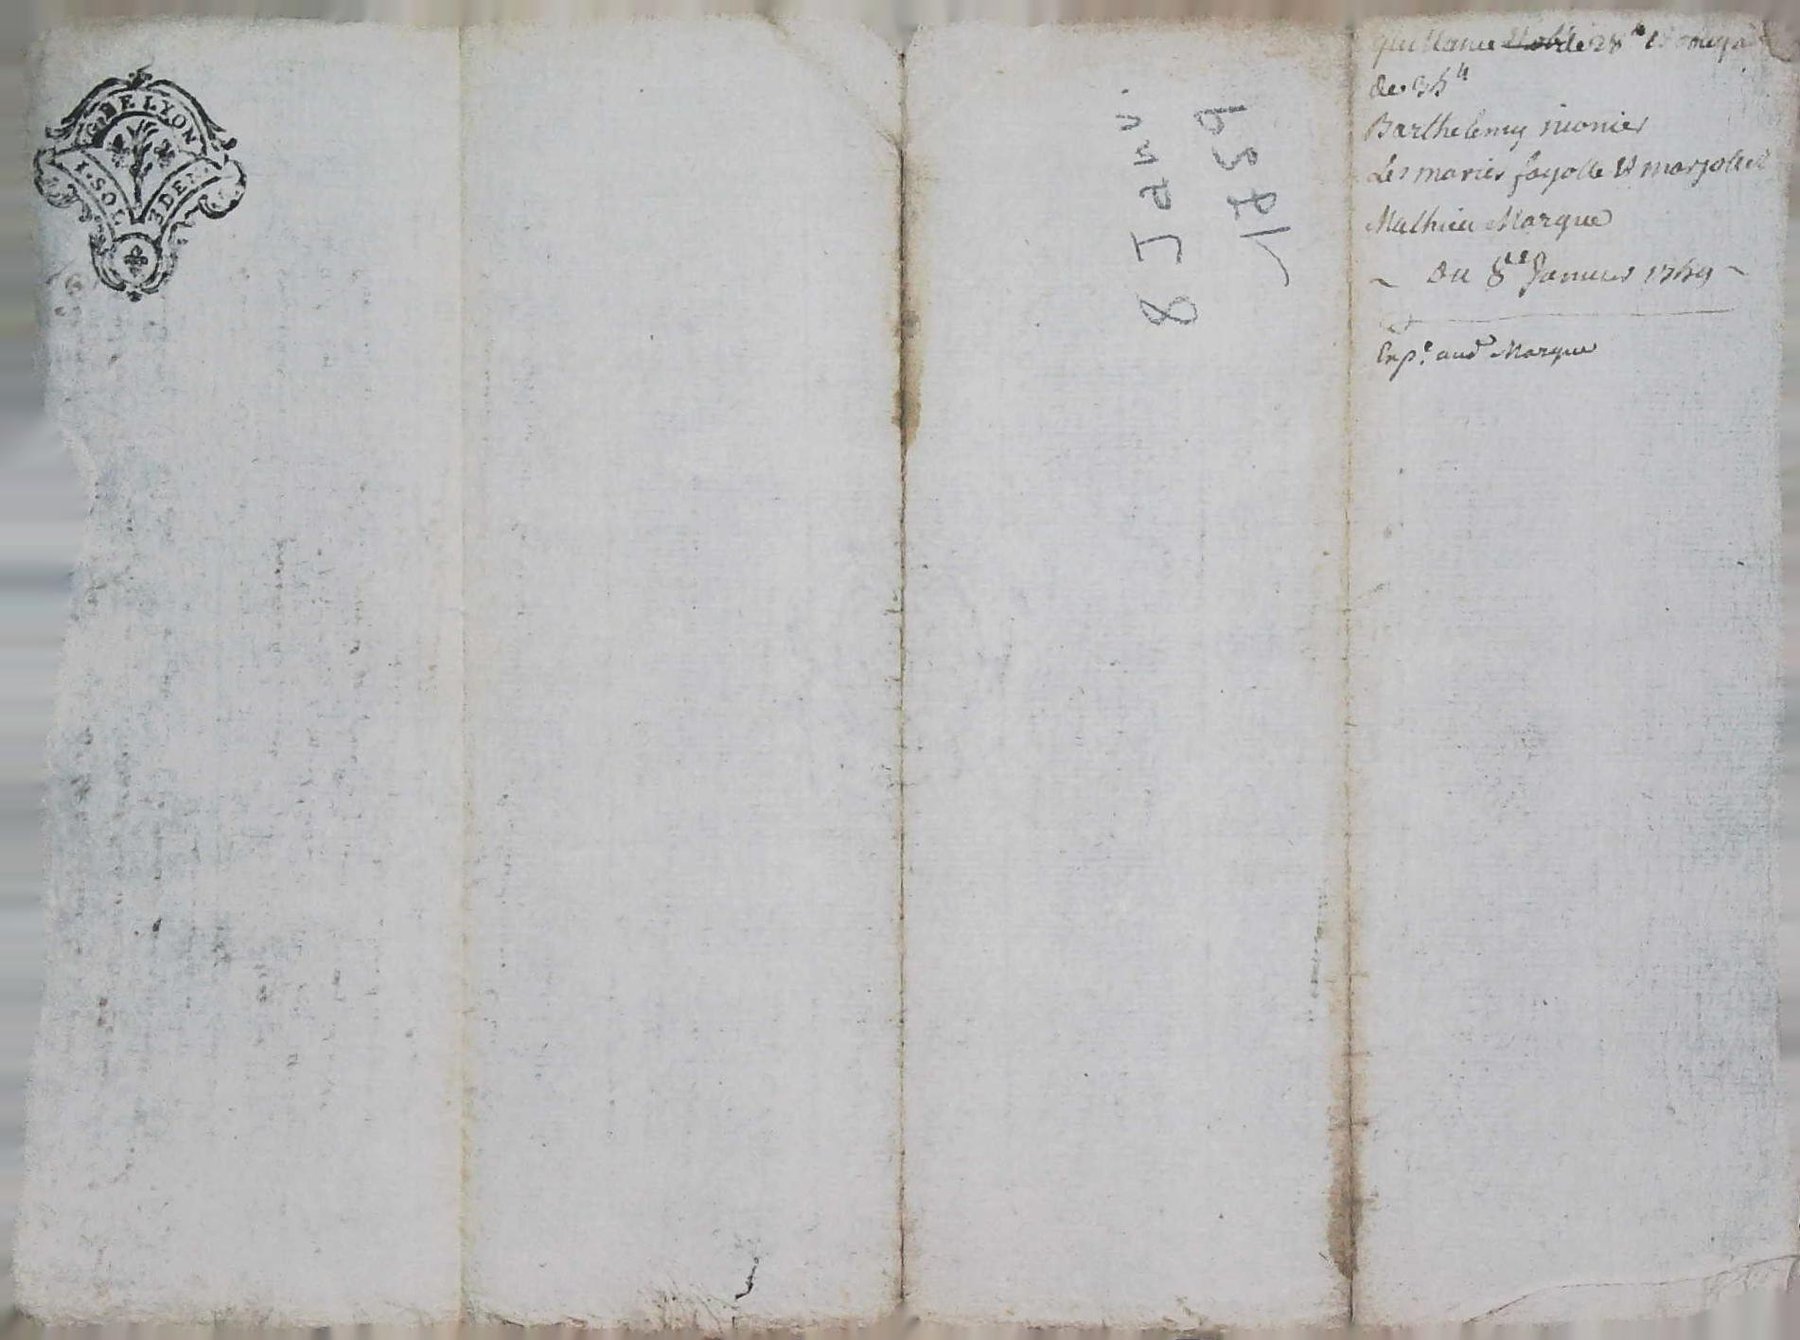 G. DE LYON
1. SOL 3 DEN.
8 Janv.
1759
quittance de 28# et oblig.on
de 35#
Barthelemy monier
Les mariés fayolle et marjollet
Mathieu Marque
~ Du 8e Janvier 1759 ~
Exp.e aud Marque